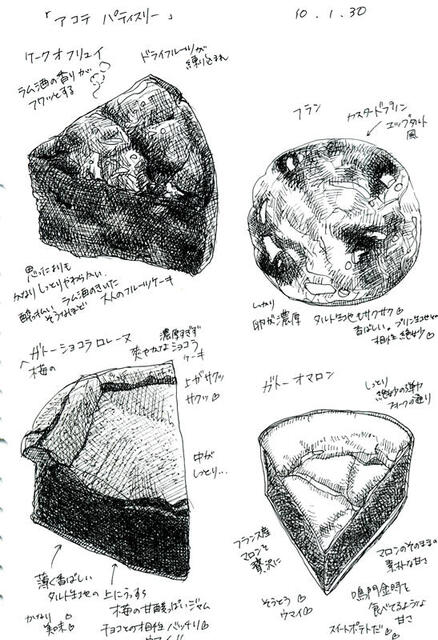 「アコテ パティスリー」
10.1.30
ケークオフリュイ
ドライフルーツが
練り込まれ
ラム酒の香りが
フワッとする
フラン
カスタードプリン
エッグタルト
風
思ったよりも
かなりしっとりやわらかい。
ラム酒のきいた
大人のフルーツケーキ
しっかり
卵が濃厚
タルト生地もサクサク♡
香ばしい。プリン生地との
相性 絶妙♡
ガトーショコラロレーヌ
梅の
濃厚すぎず
爽やかなショコラ
ケーキ
上がサクッ
サクッ♡
中が
しっとり…
薄く香ばしい
タルト生地の上にうっすら
梅の甘酸っぱいジャム
かなり
美味♡
チョコとの相性バッチリ♡
ウマイ!!
ガトーオマロン
しっとり
フォークの通り
フランス産
マロンを
贅沢に
そうとう
ウマイ♡
マロンのそのままの
素朴な甘さ
鳴門金時を
食べてるような
甘さ
スイートポテトだ♡